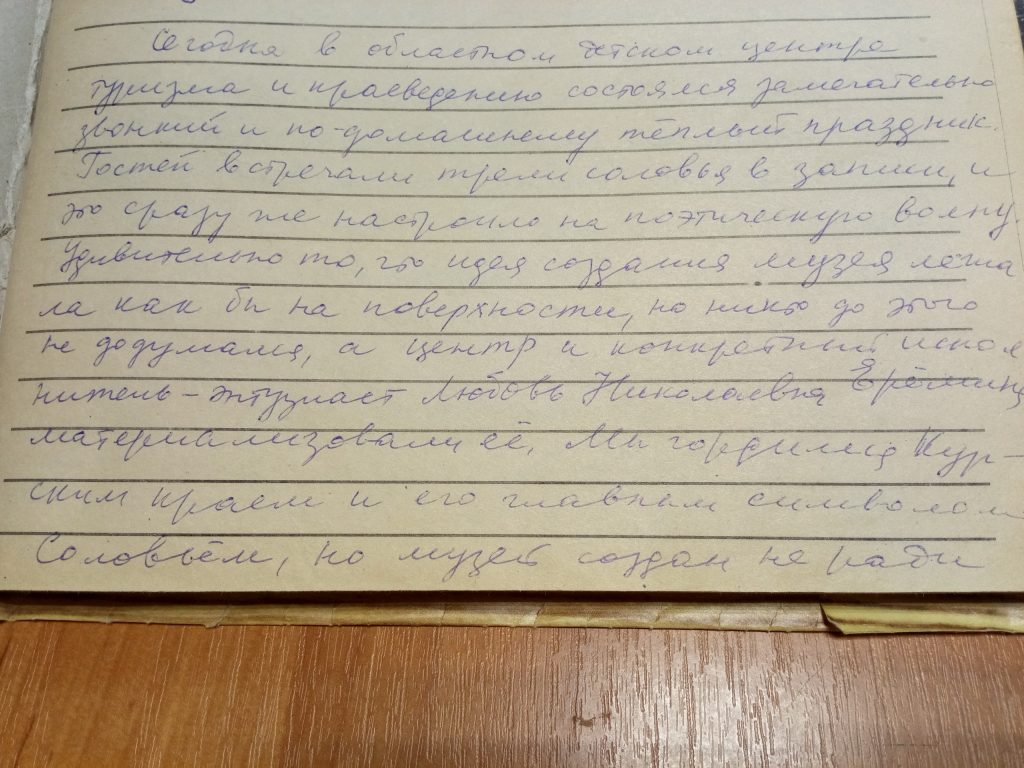 Сегодня в областном детском центре
туризма и краеведению состоялся замечательно
звонкий и по-домашнему тёплый праздник.
Гостей встречали трели соловья в записи, и
это сразу же настроило на поэтическую волну.
Удивительно то, что идея создания музея лежа
ла как бы на поверхности, но никто до этого
не додумался, а центр и конкретный испол
нитель - энтузиаст Любовь Николаевна Ерёмина
материализовали её. Мы гордимся Кур-
ским краем и его главным символом
Соловьём, но музей создан не ради